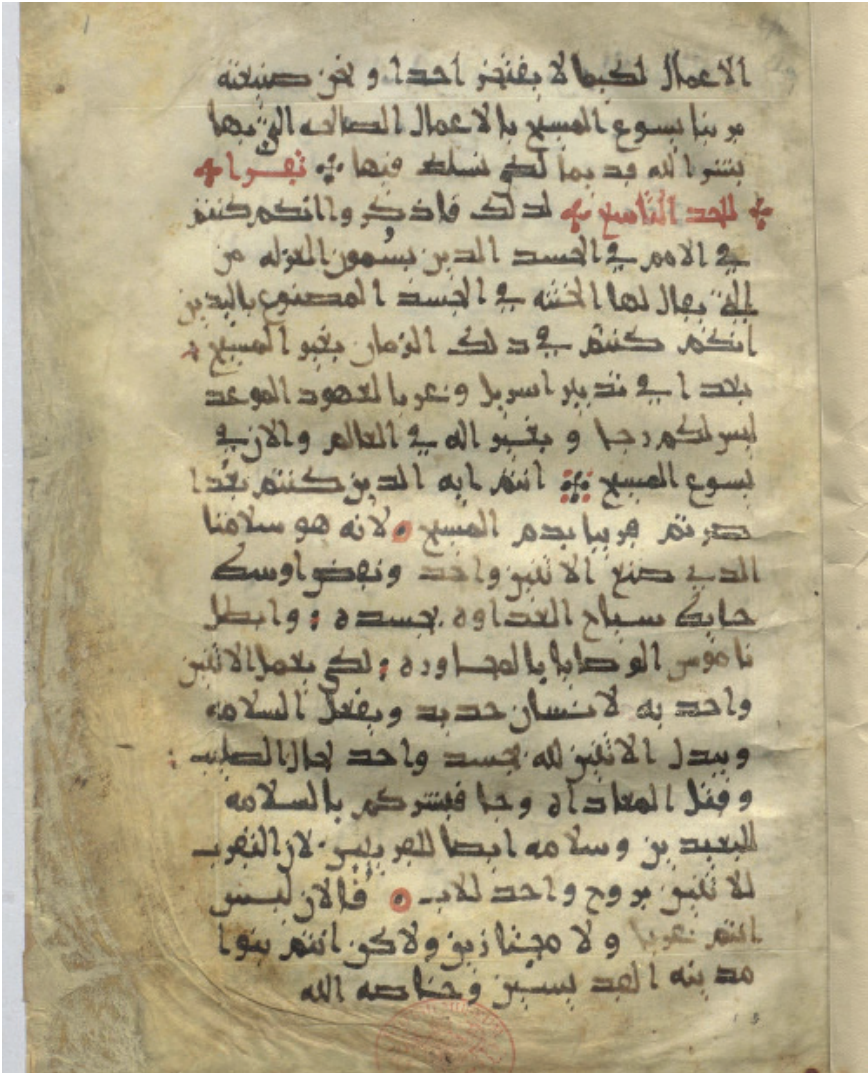 الاعمال لكيما لا يفتخر احدا و نحن صنيعته
بربنا يسوع المسيح بالاعمال الصالحه التي بها
بشر الله قديما لكي نسلك فيها تقرا
للحد التاسع لذلك فاذكروا انكم كنتم
في الامم في الجسد الذين يسمون العزله من
التي يقال لها الختنه في الجسد المصنوع باليدين
انكم كنتم في ذلك الزمان بغير المسيح
بعدا في تدبير اسريل وغربا لعهود الموعد
ليس لكم رجا و بغير اله في العالم والان في
يسوع المسيح انتم ايه الذين كنتم بعدا
صرتم قريبا بدم المسيح لانه هو سلامنا
الذي صنع الاثنين واحد ونقض اوسط
حايط سياج العداوه بجسده وابطل
ناموس الوصايا بالمجاوره لكي يعمل الاثنين
واحد به لانسان جديد ويفعل السلامه
ويبدل الاثنين لله بجسد واحد بحال الصليب
وقتل المعاداه وجا فبشركم بالسلامه
للبعيدين وسلامه ايضا للقريبين لان التقرب
للاثنين بروح واحد للاب فالان ليس
انتم غربا ولا مجتازين ولاكن انتم بنوا
مدينه القديسين وخاصه الله